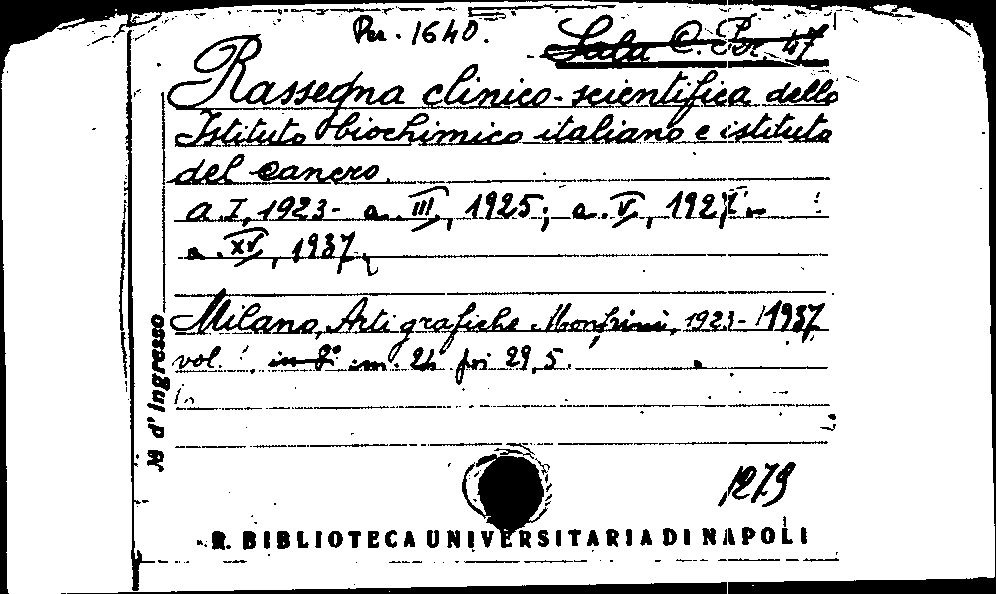 Per. 1640.
Sala C. Per. 47
Rassegna clinico-scientifica dello
Istituto biochimico italiano e istituto
del cancro.
a. I, 1923- a. III, 1925; a. V, 1927-
a. XV, 1937,
Milano, Arti grafiche Monfrini, 1923-1937
vol. in-8° cm. 24 poi 29,5.
No d'ingresso
1279
R. BIBLIOTECA UNIVERSITARIA DI NAPOLI